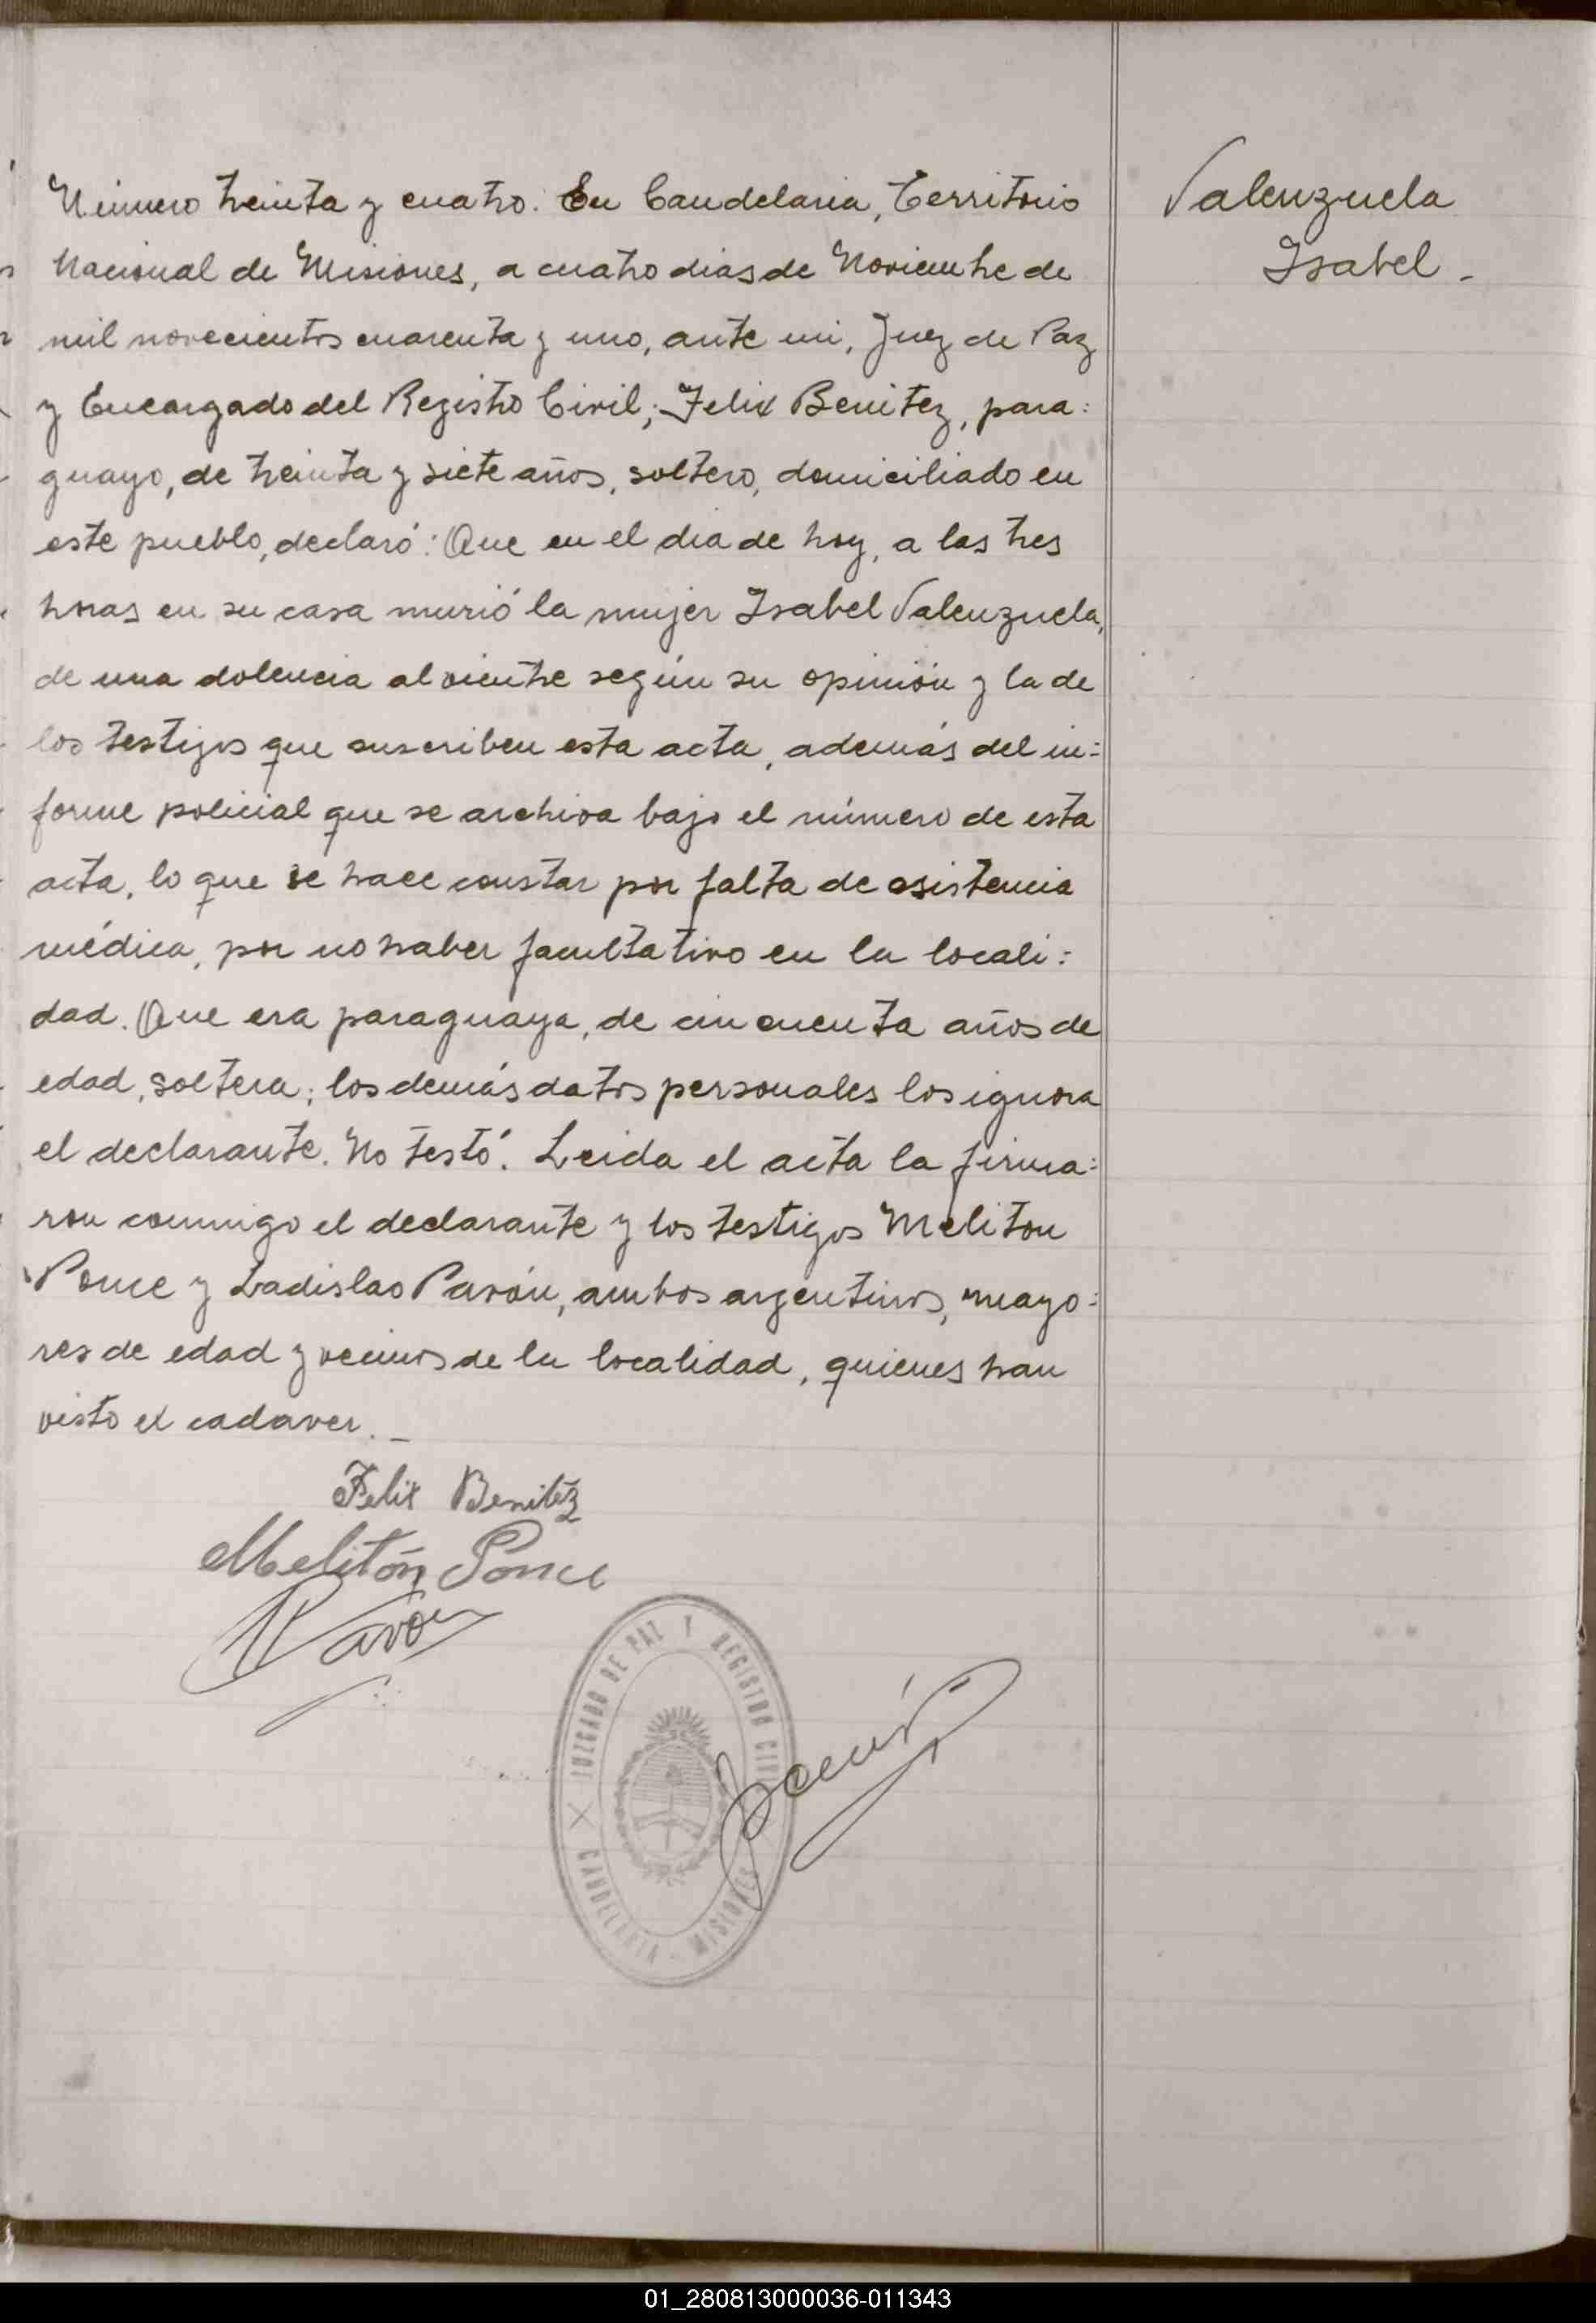 Número treinta y cuatro. En Candelaria, Territorio
Nacional de Misiones, a cuatro dias de Noviembre de
mil novecientos cuarenta y uno, ante mi, Juez de Paz
y Encargado del Registro Civil; Felix Benitez, para=
guayo, de treinta y siete años, soltero, domiciliado en
este pueblo, declaró: Que en el dia de hoy, a las tres
horas en su casa murió la mujer Isabel Valenzuela,
de una dolencia al vientre según su opinión y la de
los testigos que suscriben esta acta, además del in=
forme policial que se archiva bajo el número de esta
acta, lo que se hace constar por falta de asistencia
médica, por no haber facultativo en la locali=
dad. Que era paraguaya, de cincuenta años de
edad, soltera; los demás datos personales los ignora
el declarante. No testó. Leida el acta la firma=
ron conmigo el declarante y los testigos Meliton
Ponce y Ladislao Pavón, ambos argentinos, mayo=
res de edad y vecinos de la localidad, quienes han
visto el cadaver._
Valenzuela
Isabel -
Felix Benitez
Melitón Ponce
Pavón
JUZGADO DE PAZ Y REGISTRO CIVIL
CANDELARIA - MISIONES
01_280813000036-011343